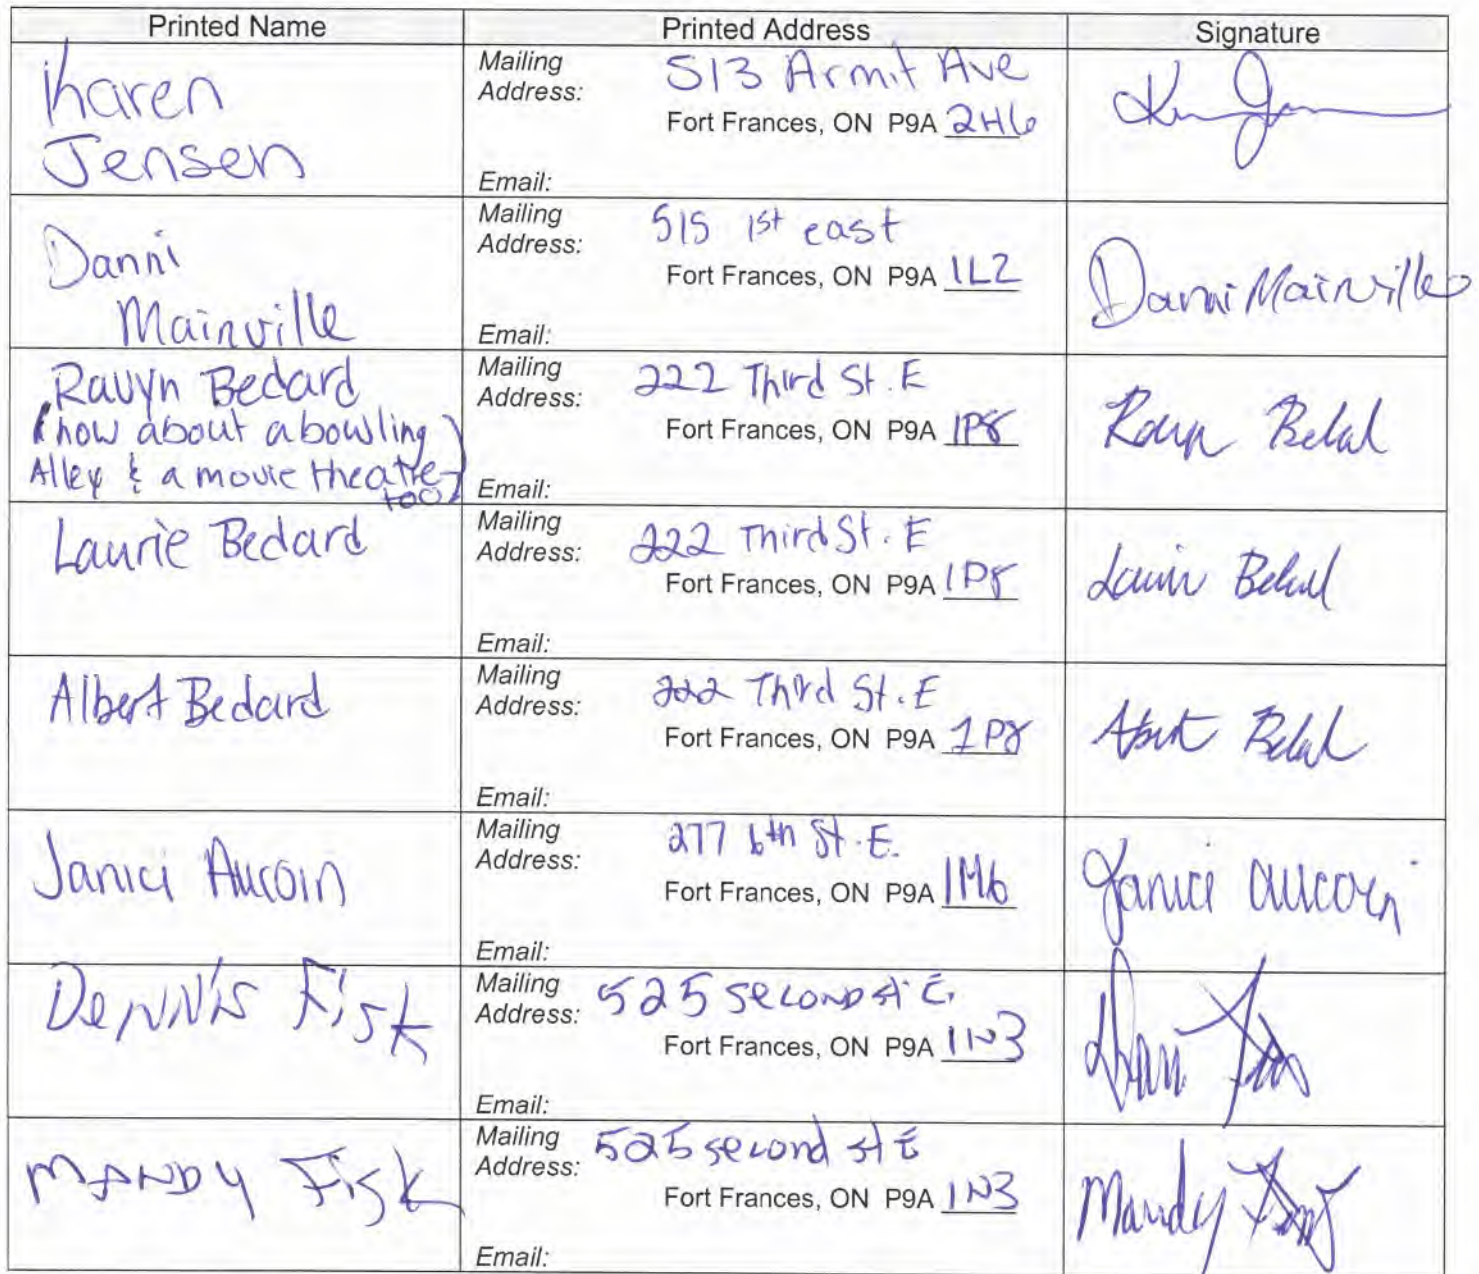 Printed Name Printed Address Signature
Karen
Jensen
Mailing
Address:
513 Armit Ave
Fort Frances, ON P9A 2H6
Email:
Danni
Mainville
Mailing
Address:
515 1st east
Fort Frances, ON P9A 1L2
Email:
Danni Mainville
Ravyn Bedard
(how about a bowling
Alley & a movie theatre
too)
Mailing
Address:
222 Third St. E
Fort Frances, ON P9A 1P8
Email:
Laurie Bedard
Mailing
Address:
222 Third St. E
Fort Frances, ON P9A 1P8
Email:
Albert Bedard
Mailing
Address:
222 Third St. E
Fort Frances, ON P9A 1P8
Email:
Janici Aucoin
Mailing
Address:
277 6th St. E.
Fort Frances, ON P9A 1M6
Email:
Janici Aucoin
DeNNis Fisk
Mailing
Address:
525 second st E.
Fort Frances, ON P9A 1N3
Email:
MANDY Fisk
Mailing
Address:
525 second st E
Fort Frances, ON P9A 1N3
Email:
Mandy